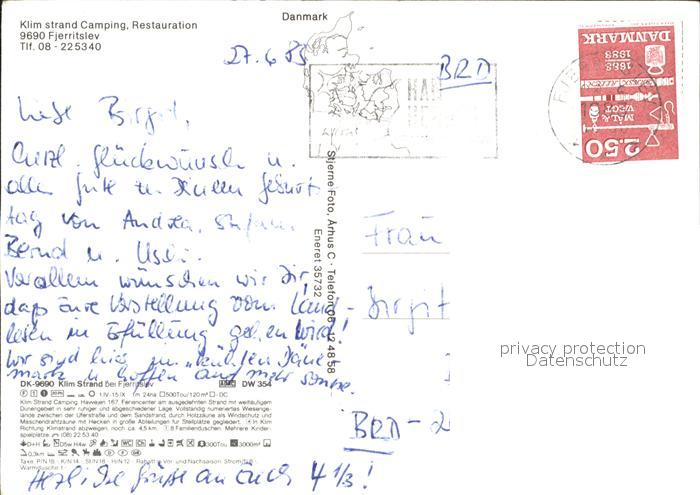 Klim strand Camping, Restauration
9690 Fjerritslev
Tlf. 08 - 225340
Danmark
27.6.83
BRD
Liebe Birgit,
herzl. Glückwünsche u.
alles Gute zu Deinem Geburts-
tag von Andrea, Stefan,
Bernd u. Uschi.
Vor allem wünschen wir Dir,
daß Eure Vorstellung vom
in Erfüllung gehen wird!
Wir sind hier im "kühlen Däne-
mark" u. hoffen auf mehr Sonne.
DANMARK
1683
1983
MÅL &
VÆGT
2.50
Stjerne Foto, Århus C · Telefon 06 - 12 48 58
Eneret 35732
Frau
Birgit
BRD - 2
privacy protection
Datenschutz
DK-9690 Klim Strand bei Fjerritslev DW 354
1/V-15/IX 24ha 500Tou/120m² - DC
Klim Strand Camping, Havvejen 167, Feriencenter am ausgedehnten Strand mit weitläufigem
Dünengebiet in sehr ruhiger und abgeschiedener Lage. Vollständig numeriertes Wiesenge-
lände zwischen der Uferstraße und dem Sandstrand, durch Holzzäune als Windschutz und
Maschendrahtzäune mit Hecken in große Abteilungen für Stellplätze gegliedert. In Klim
Richtung Klimstrand abzweigen, noch ca. 4,5 km. 8 Familienduschen. Mehrere Kinder-
spielplätze. (08) 22 53 40
300Tou 3000m²
0,3km
Herzliche Grüße an Euch 4 1/3!